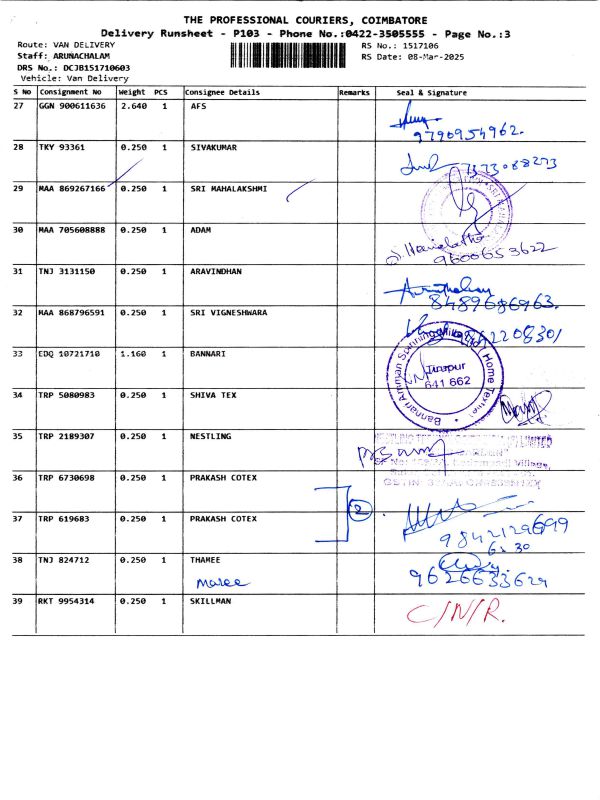 THE PROFESSIONAL COURIERS, COIMBATORE
Delivery Runsheet - P103 - Phone No.:0422-3505555 - Page No.:3
Route: VAN DELIVERY
RS No.: 1517106
Staff: ARUNACHALAM
RS Date: 08-Mar-2025
DRS No.: DCJB151710603
Vehicle: Van Delivery
S No Consignment No Weight PCS Consignee Details Remarks Seal & Signature
27 GGN 900611636 2.640 1 AFS
9790954962.
28 TKY 93361 0.250 1 SIVAKUMAR
7373088273
29 MAA 869267166 0.250 1 SRI MAHALAKSHMI
30 MAA 705608888 0.250 1 ADAM
9600653622
31 TNJ 3131150 0.250 1 ARAVINDHAN
8489686963.
32 MAA 868796591 0.250 1 SRI VIGNESHWARA
2208301
33 EDQ 10721710 1.160 1 BANNARI
Bannari Amman Spinning Mills Ltd Home Textile
Tirupur
641 662
34 TRP 5080983 0.250 1 SHIVA TEX
35 TRP 2189307 0.250 1 NESTLING
LIMITED
Village,
GSTIN
36 TRP 6730698 0.250 1 PRAKASH COTEX
2
37 TRP 619683 0.250 1 PRAKASH COTEX
9842129699
6.30
38 TNJ 824712 0.250 1 THAMEE
9626633629
39 RKT 9954314 0.250 1 SKILLMAN
C/N/R.